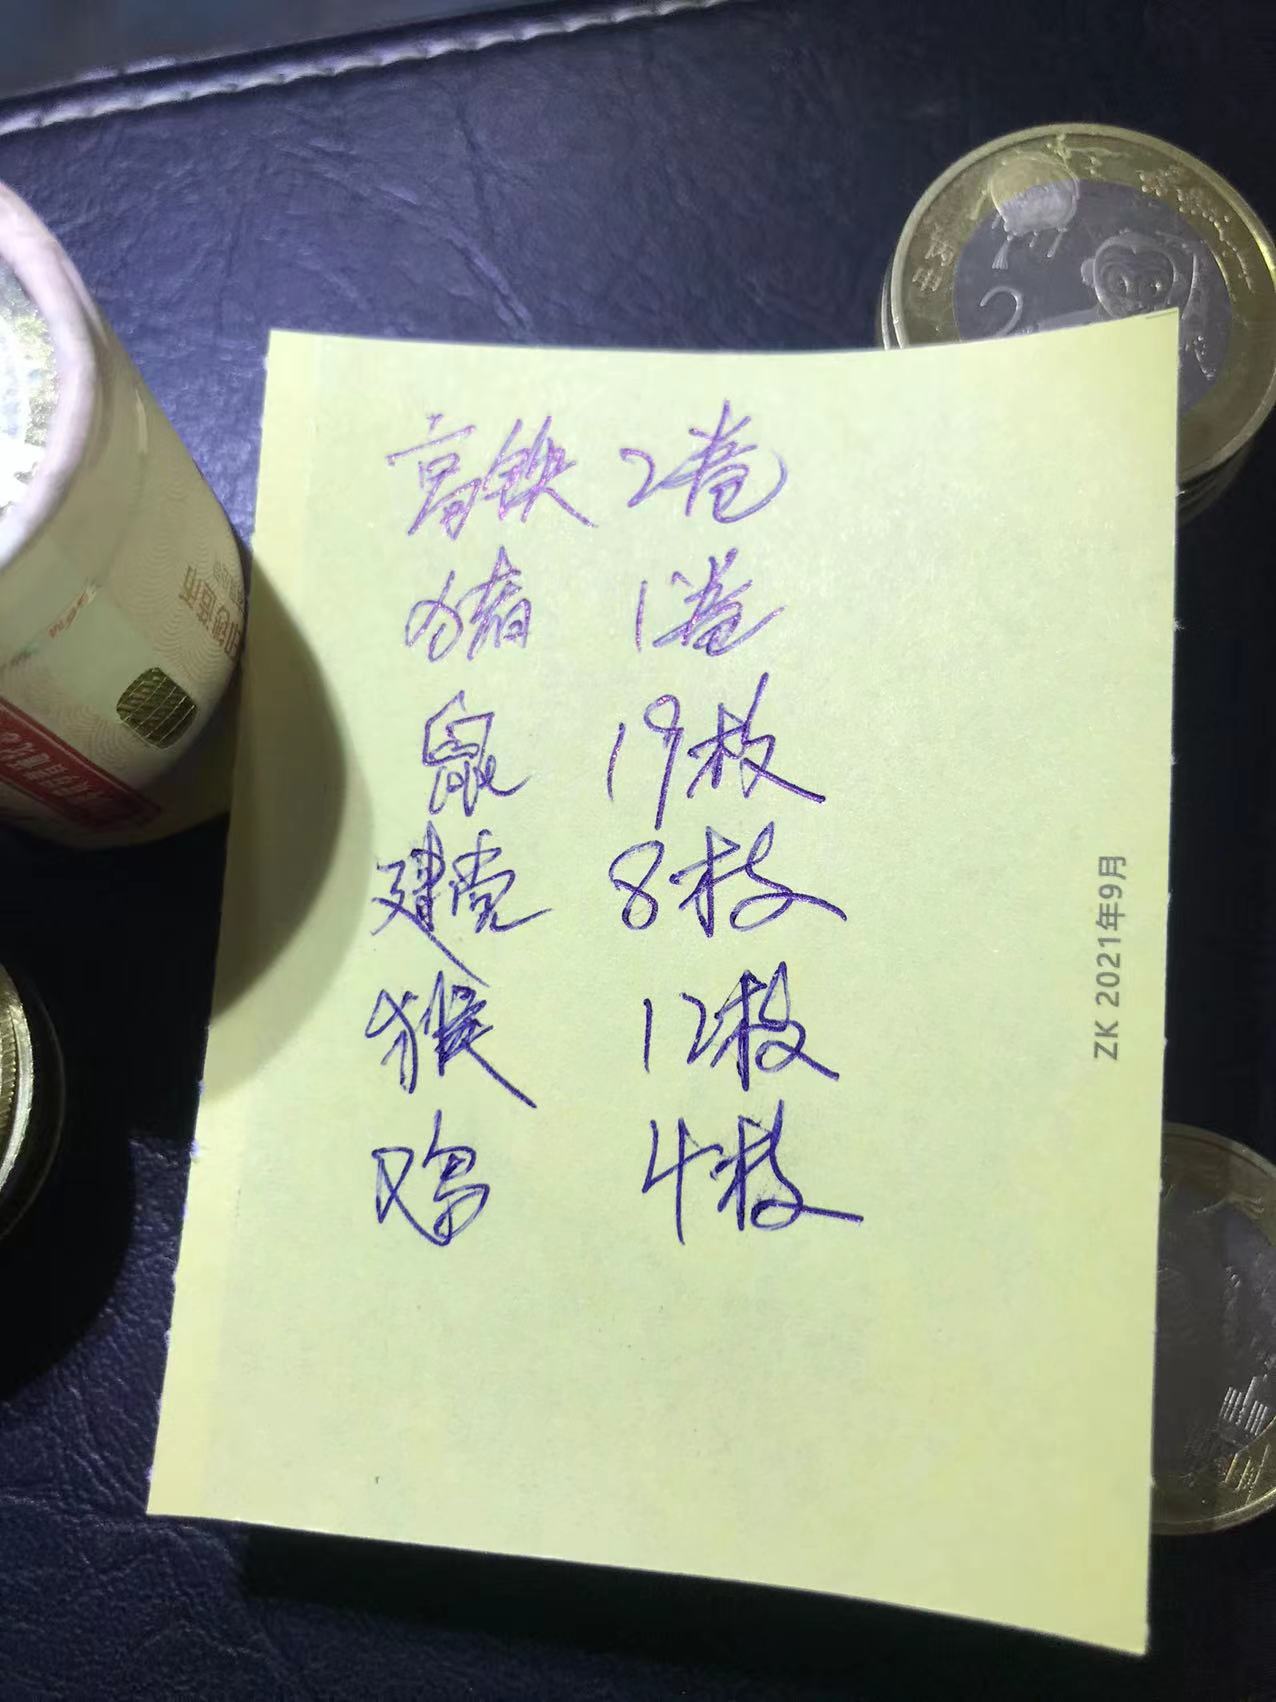 高铁 2卷
猪 1卷
鼠 19枚
建党 8枚
猴 12枚
鸡 4枚
ZK 2021年9月